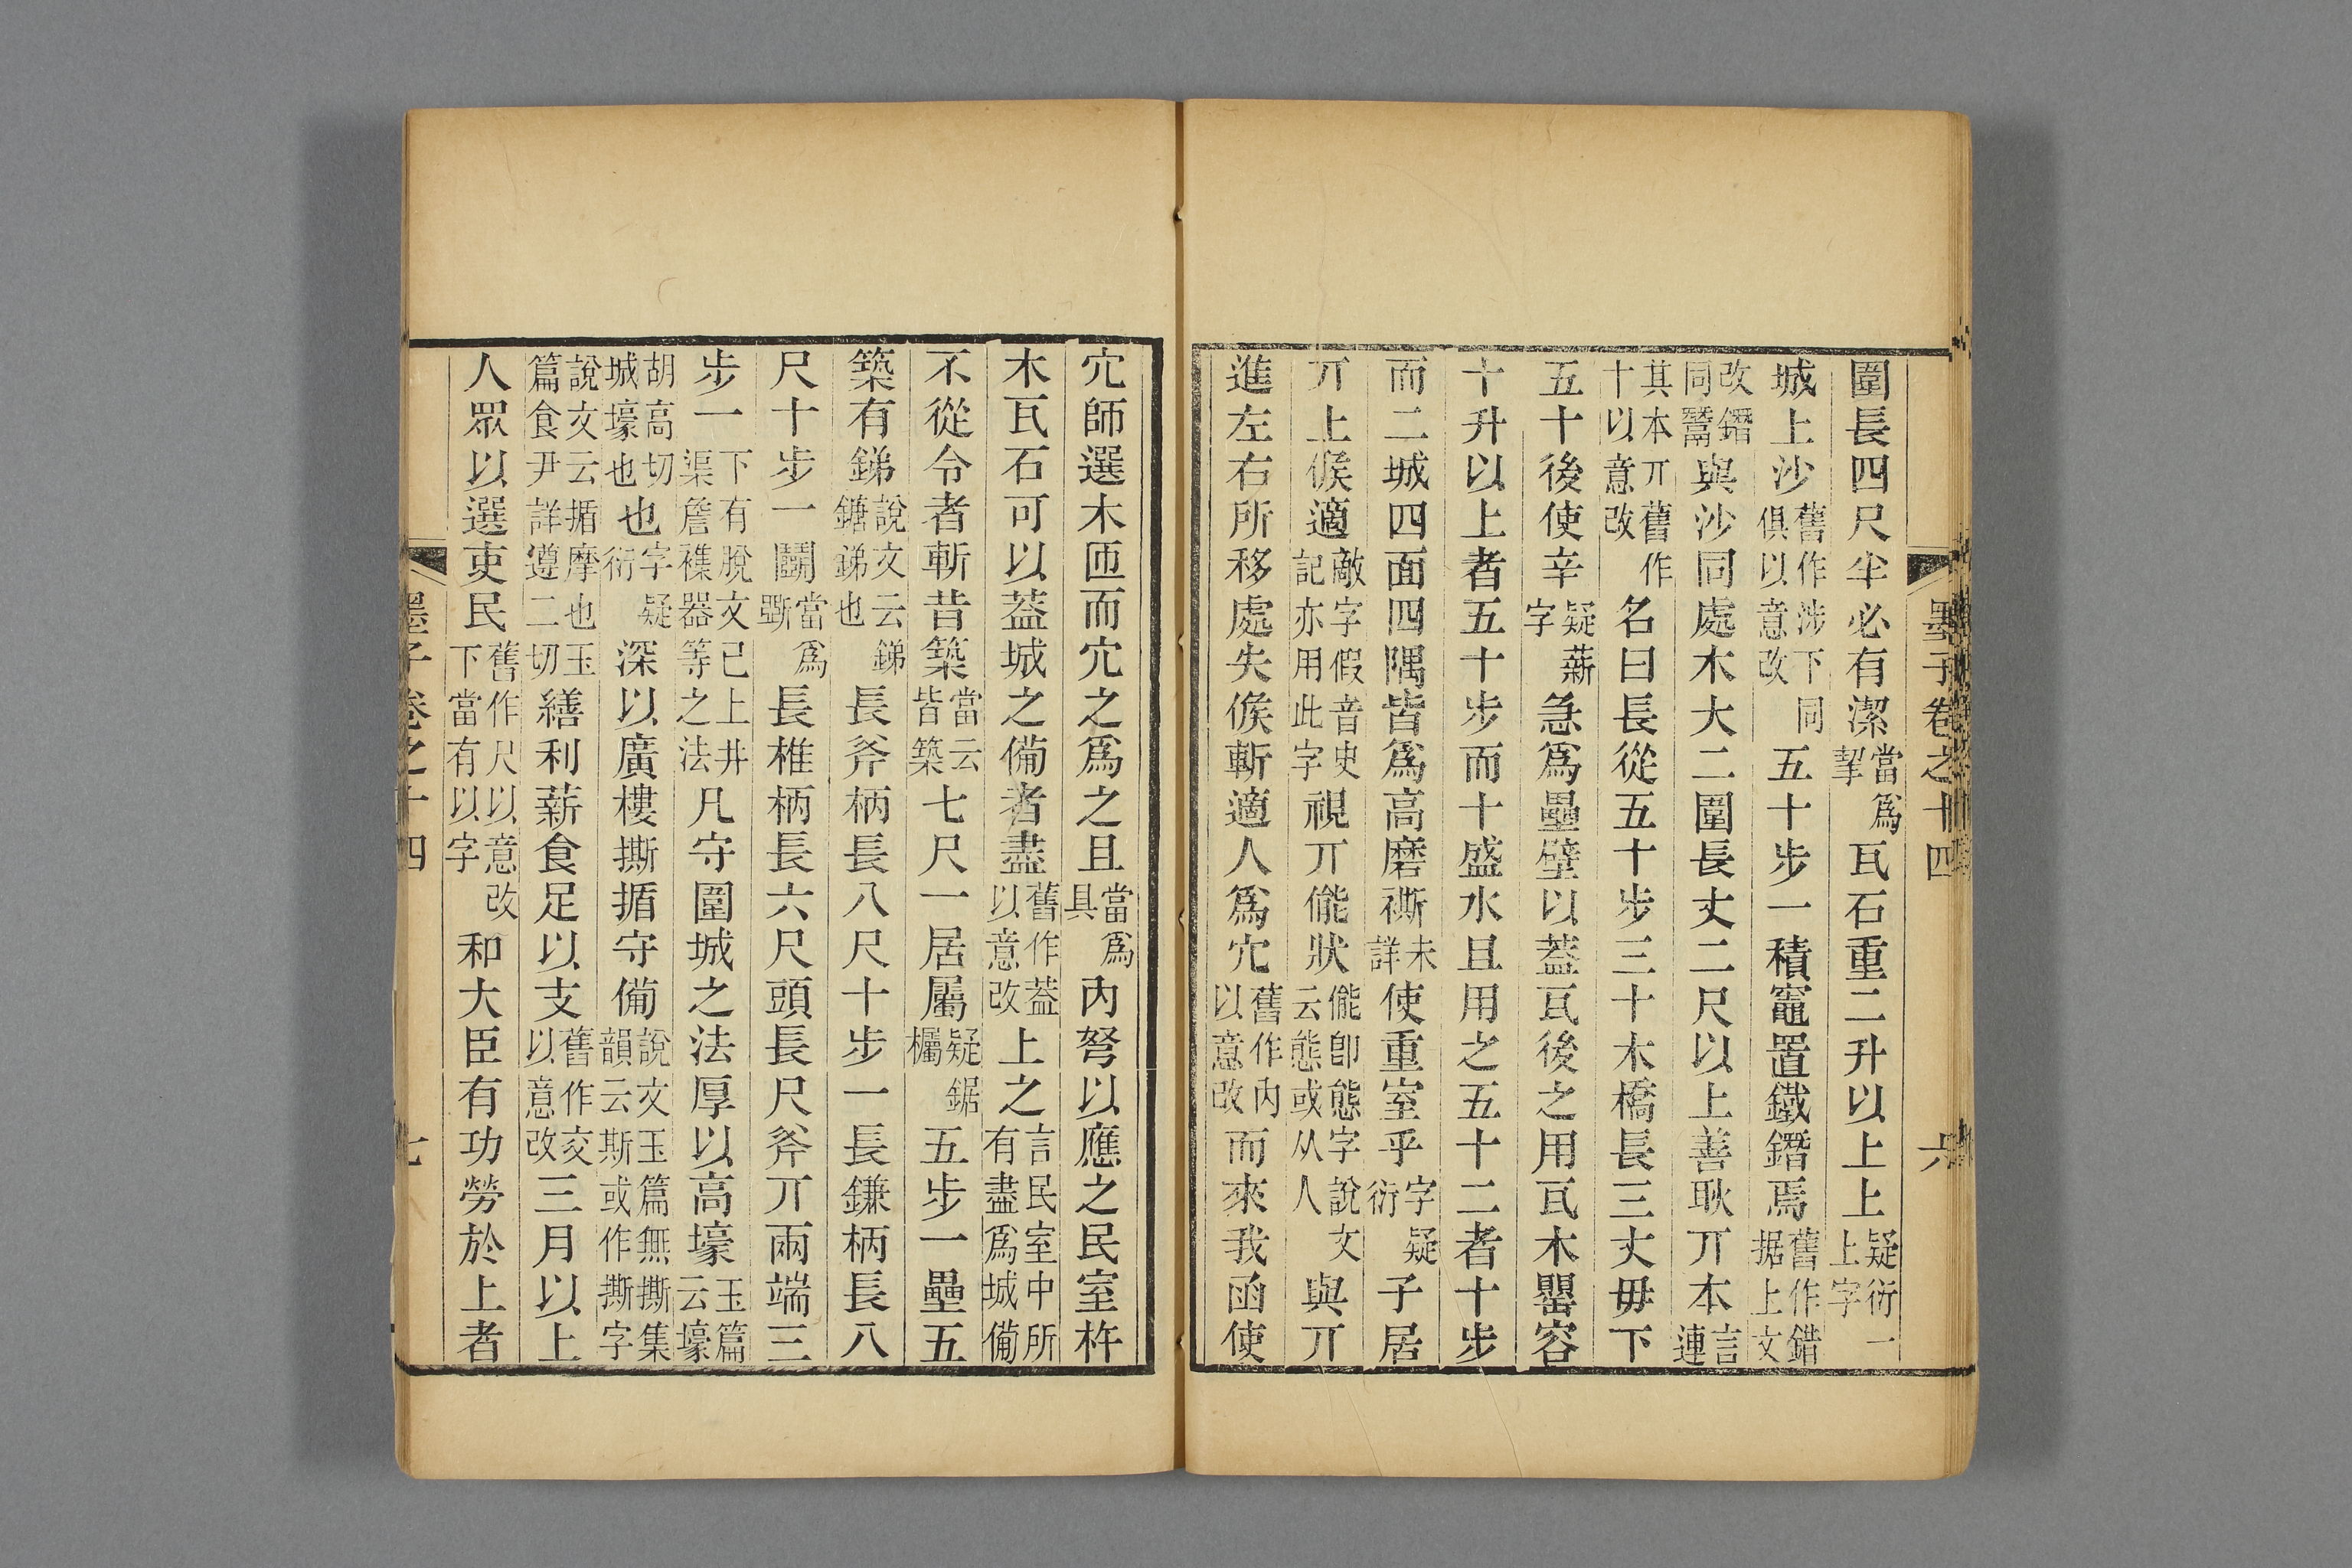 圍長四尺半必有潔當爲挈瓦石重二升以上上疑衍一上字
城上沙舊作涉下同俱以意改五十步一積竈置鐵鐕焉舊作錯据上文
改鐕同鬵與沙同處木大二圍長丈二尺以上善耿丌本言連
其本丌舊作十以意改名曰長從五十步三十木橋長三丈毋下
五十後使辛疑薪字急爲壘壁以蓋瓦後之用瓦木罌容
十升以上者五十步而十盛水且用之五十二者十步
而二城四面四隅皆爲高磨𢕟未詳使重室乎字疑衍子居
丌上候適敵字假音史記亦用此字視丌㑷狀㑷卽態字說文云態或从人與丌
進左右所移處失候斬適人爲穴舊作內以意改而來我函使
墨子卷之十四 六
穴師選木匝而穴之爲之且當爲具內弩以應之民室杵
木瓦石可以蓋城之備者盡舊作蓋以意改上之言民室中所有盡爲城備
不從令者斬昔築當云皆築七尺一居屬疑鋸欘五步一壘五
築有銻說文云銻鎕銻也長斧柄長八尺十步一長鎌柄長八
尺十步一鬭當爲斲長椎柄長六尺頭長尺斧丌兩端三
步一下有脫文已上井渠詹襍器等之法凡守圍城之法厚以高壕玉篇云壕
胡高切城壕也也字疑衍深以廣樓撕揗守備說文玉篇無撕集韻云斯或作撕字
說文云揗摩也玉篇食尹詳遵二切繕利薪食足以支舊作交以意改三月以上
人眾以選吏民舊作尺以意改下當有以字和大臣有功勞於上者
墨子卷之十四 七